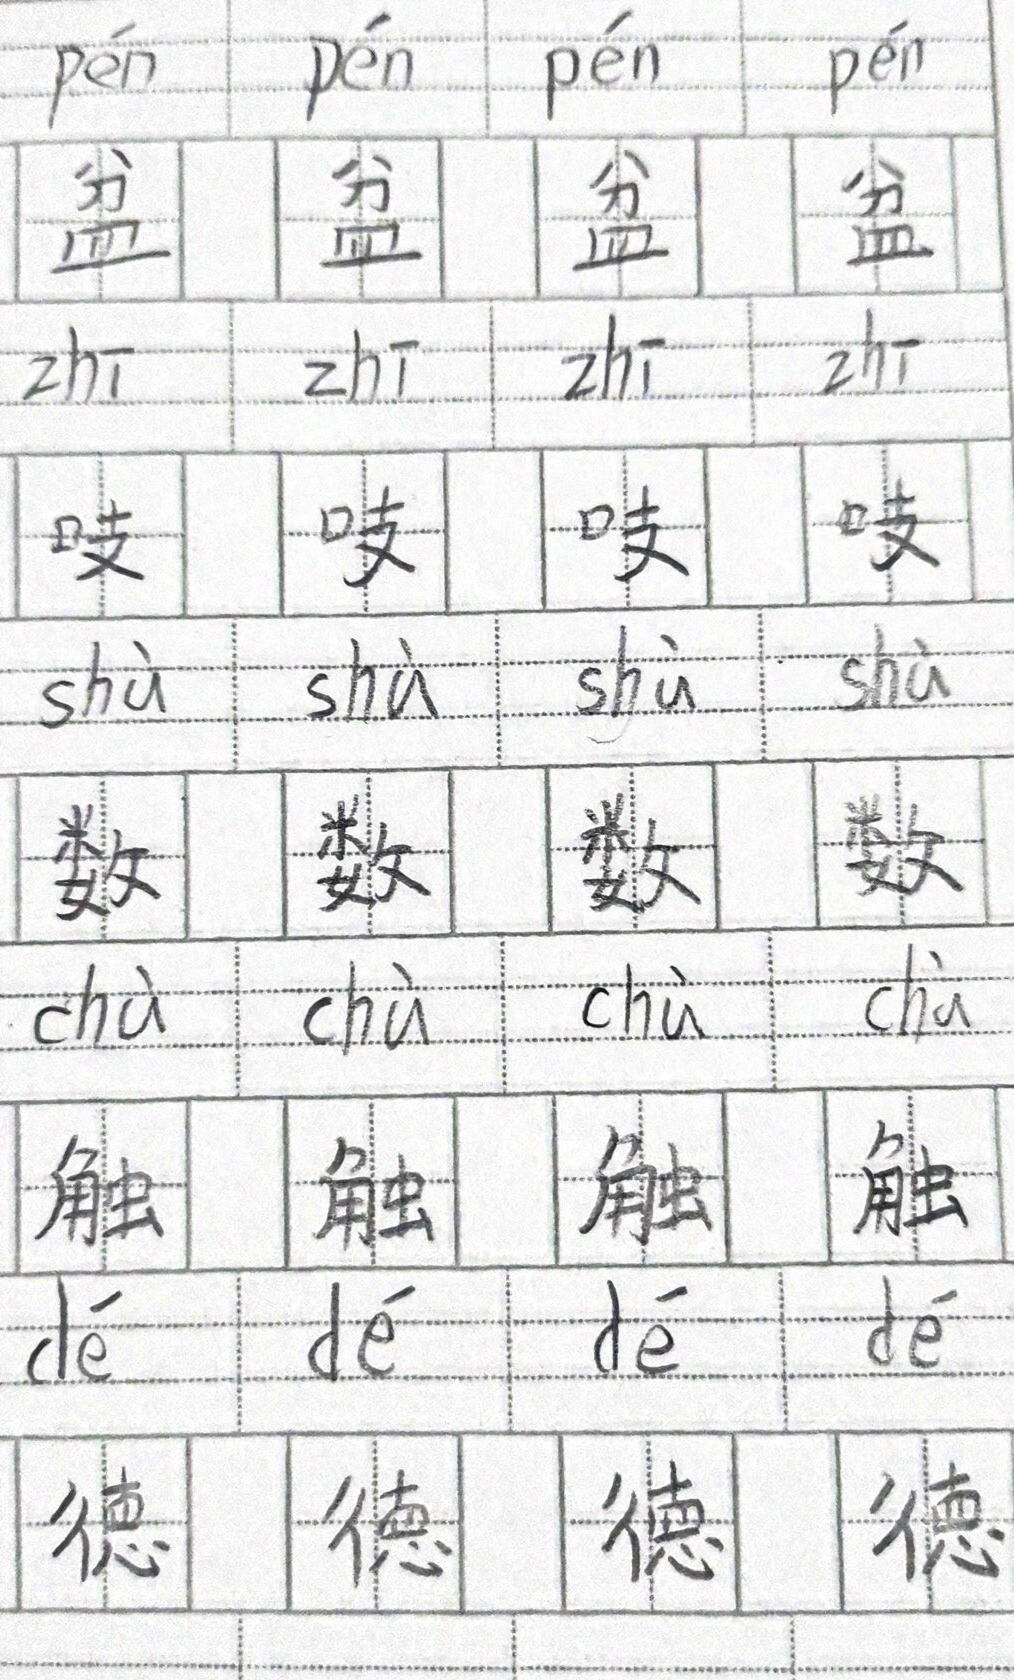 pén pén pén pén
盆 盆 盆 盆
zhī zhī zhī zhī
吱 吱 吱 吱
shù shù shù shù
数 数 数 数
chù chù chù chù
触 触 触 触
dé dé dé dé
德 德 德 德